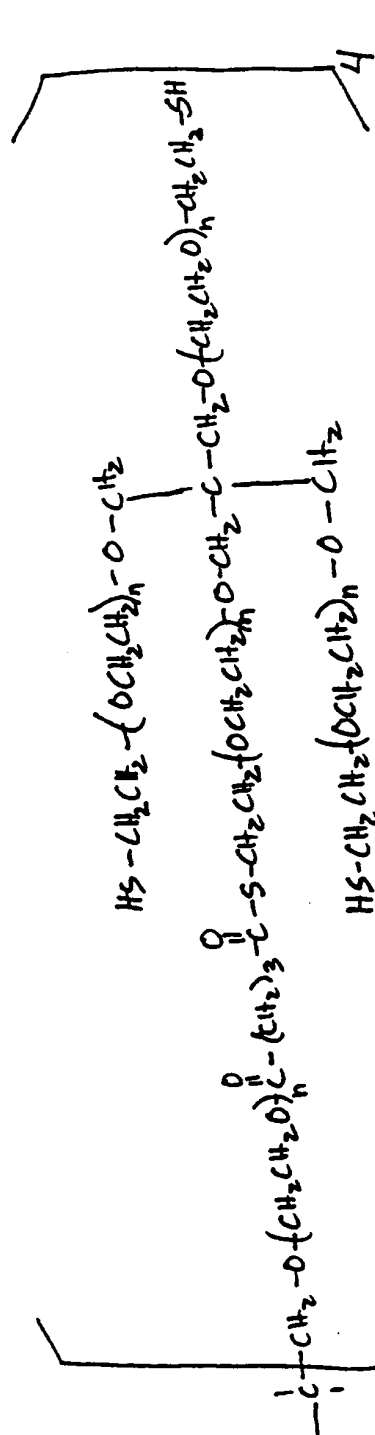 HS-CH₂CH₂-(OCH₂CH₂)ₙ-O-CH₂
-C-CH₂-O-(CH₂CH₂O)ₙ-C(=O)-(CH₂)₃-C(=O)-S-CH₂CH₂-(OCH₂CH₂)ₙ-O-CH₂-C-CH₂-O-(CH₂CH₂O)ₙ-CH₂CH₂-SH
HS-CH₂CH₂-(OCH₂CH₂)ₙ-O-CH₂
4